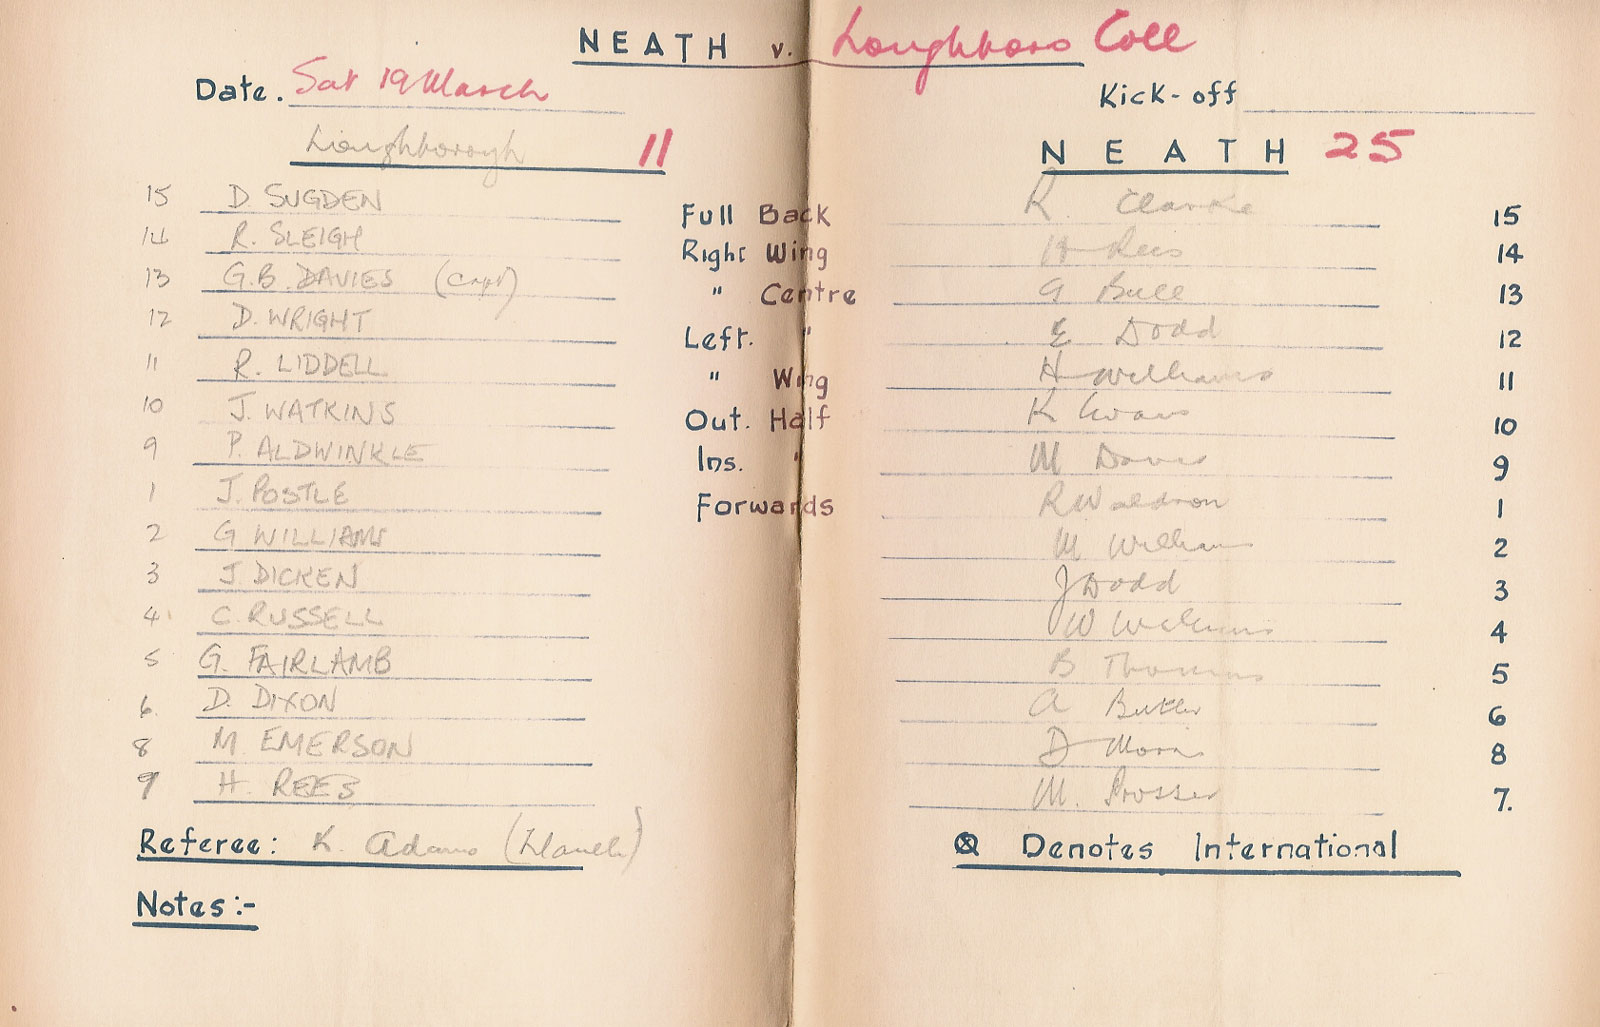 NEATH v. Loughboro Coll
Date. Sat 19 March Kick-off
Loughborough 11 NEATH 25
15 D. SUGDEN Full Back R. Clarke 15
14 R. SLEIGH Right Wing H Rees 14
13 G.B. DAVIES (Capt) " Centre G Ball 13
12 D. WRIGHT Left. " E Dodd 12
11 R. LIDDELL " Wing H Williams 11
10 J. WATKINS Out. Half K Evans 10
9 P. ALDWINKLE Ins. " M Davies 9
1 J. POSTLE Forwards R Waldron 1
2 G WILLIAMS M Williams 2
3 J. DICKEN J Dodd 3
4 C. RUSSELL W Williams 4
5 G. FAIRLAMB B Thomas 5
6. D. DIXON A Butler 6
8 M. EMERSON D Morris 8
9 H. REES M. Prosser 7.
Referee: K. Adams (Llanelli) ⊗ Denotes International
Notes:-